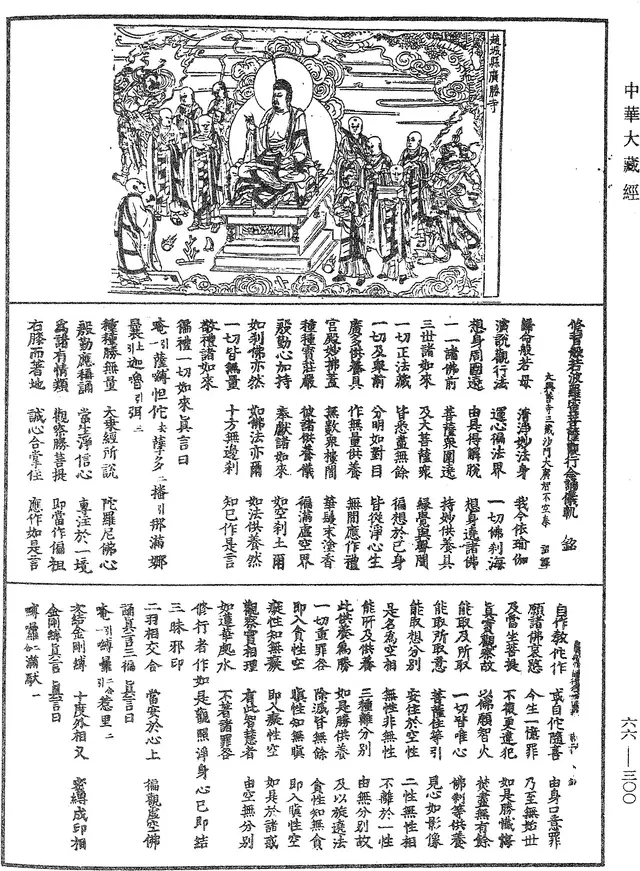 中華大藏經
趙城縣廣勝寺
修習般若波羅蜜菩薩觀行念誦儀軌 銘
大興善寺三藏沙門大廣智不空奉 詔譯
歸命般若母 清淨妙法身 我今依瑜伽
演說觀行法 運心徧法界 一切佛刹海
想身周圍遶 由是得解脫 想身遶諸佛
一一諸佛前 菩薩衆圍遶 持妙供養具
三世諸如來 及大菩薩衆 緣覺與聲聞
一切正法藏 皆悉盡無餘 徧想於己身
一切及舉前 分明如對目 皆從淨心生
廣多供養具 作無量供養 無間應作禮
宮殿妙佛蓋 無數衆樓閣 華鬘末塗香
種種寶莊嚴 彼諸供養儀 徧滿虛空界
殷勤心加持 奉獻諸如來 如空刹土爾
如刹佛亦然 如佛法亦爾 如法供養然
一切皆無量 十方無邊刹 知已作是言
敬禮諸如來
徧禮一切如來真言曰
唵一引薩嚩怛佗去蘖多二播引那滿娜
曩上引迦嚕引弭三
種種勝無量 大乘經所說 陀羅尼佛心
殷勤應稱誦 當生淨信心 專注於一境
爲諸有情類 觀察勝菩提 即當作徧祖
右膝而著地 誠心合掌住 應作如是言
自作教佗作 或自佗隨喜 由身口意罪
願諸佛哀愍 今生一憶罪 乃至無始世
及當生菩提 不復更違犯 如是勝懺悔
真實觀察故 以佛願智火 焚盡無有餘
能取及所取 一切皆唯心 佛刹等供養
能取所取意 菩薩住等引 見心如影像
能取想分別 安住於空性 二性無性相
是名爲空相 無性非無性 不離於一性
能所及供養 三種離分別 由無分別故
此供養爲勝 如是勝供養 及以旋遶法
一切重罪咎 除滅皆無餘 貪性知無貪
即入貪性空 瞋性知無瞋 即入瞋性空
癡性知無癡 即入癡性空 如是於諸惑
觀察實相理 有此智慧者 由空無分別
如蓮華處水 不著諸罪咎
修行者作如是觀照淨身心已即結
三昧邪印
二羽相交合 當安於心上 徧觀虛空佛
誦真言三徧 真言曰
唵一引嚩囉二合引惹里二
次結金剛縛 十度外相叉 密縛成印相
金剛縛真言 真言曰
嚩囉二合滿馱一
六六—三〇〇